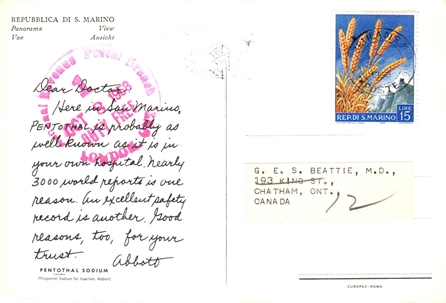 REPUBBLICA DI S. MARINO
Panorama View
Vue Ansicht
Dear Doctor:
Here in San Marino,
PENTOTHAL is probably as
well known as it is in
your own hospital. Nearly
3000 world reports is one
reason. An excellent safety
record is another. Good
reasons, too, for your
trust.
Abbott
PENTOTHAL SODIUM
(Thiopental Sodium for Injection, Abbott)
Postal Branch
OCT 3 1958
DUTY FREE
LONDON
LIRE
15
REP. DI S. MARINO
G. E. S. BEATTIE, M.D.,
193 KING ST.,
CHATHAM, ONT.,
CANADA
12
EUROPEX - ROMA